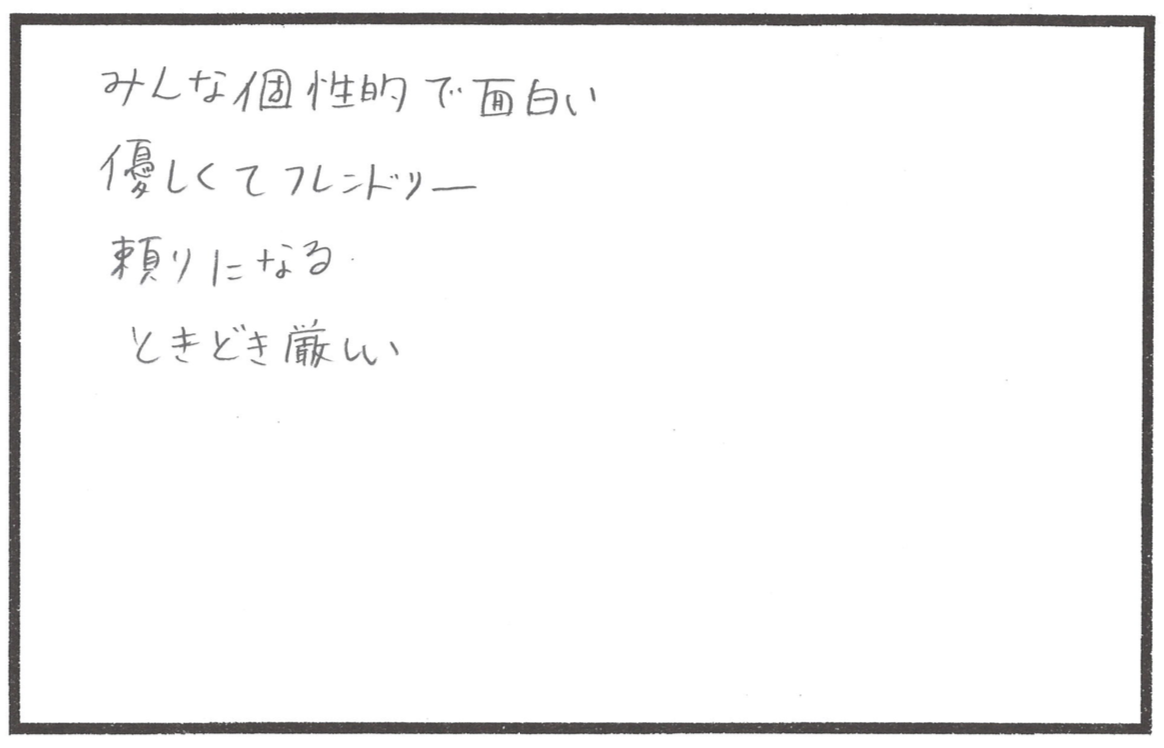 みんな個性的で面白い
優しくてフレンドリー
頼りになる
ときどき厳しい